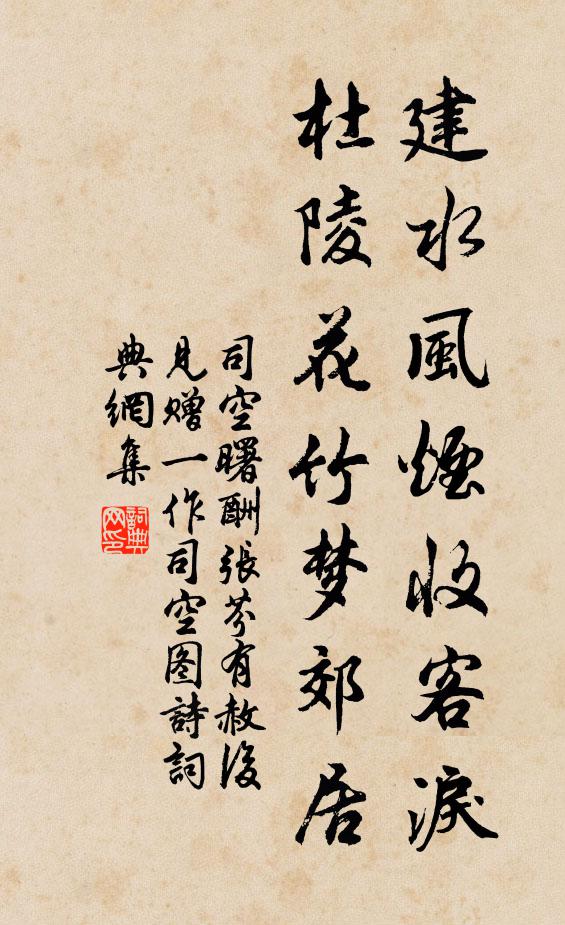 建水風煙收客淚
杜陵花竹梦郊居
司空曙酬張芬有赦後
見贈一作司空图詩詞
典網集
詞典网印